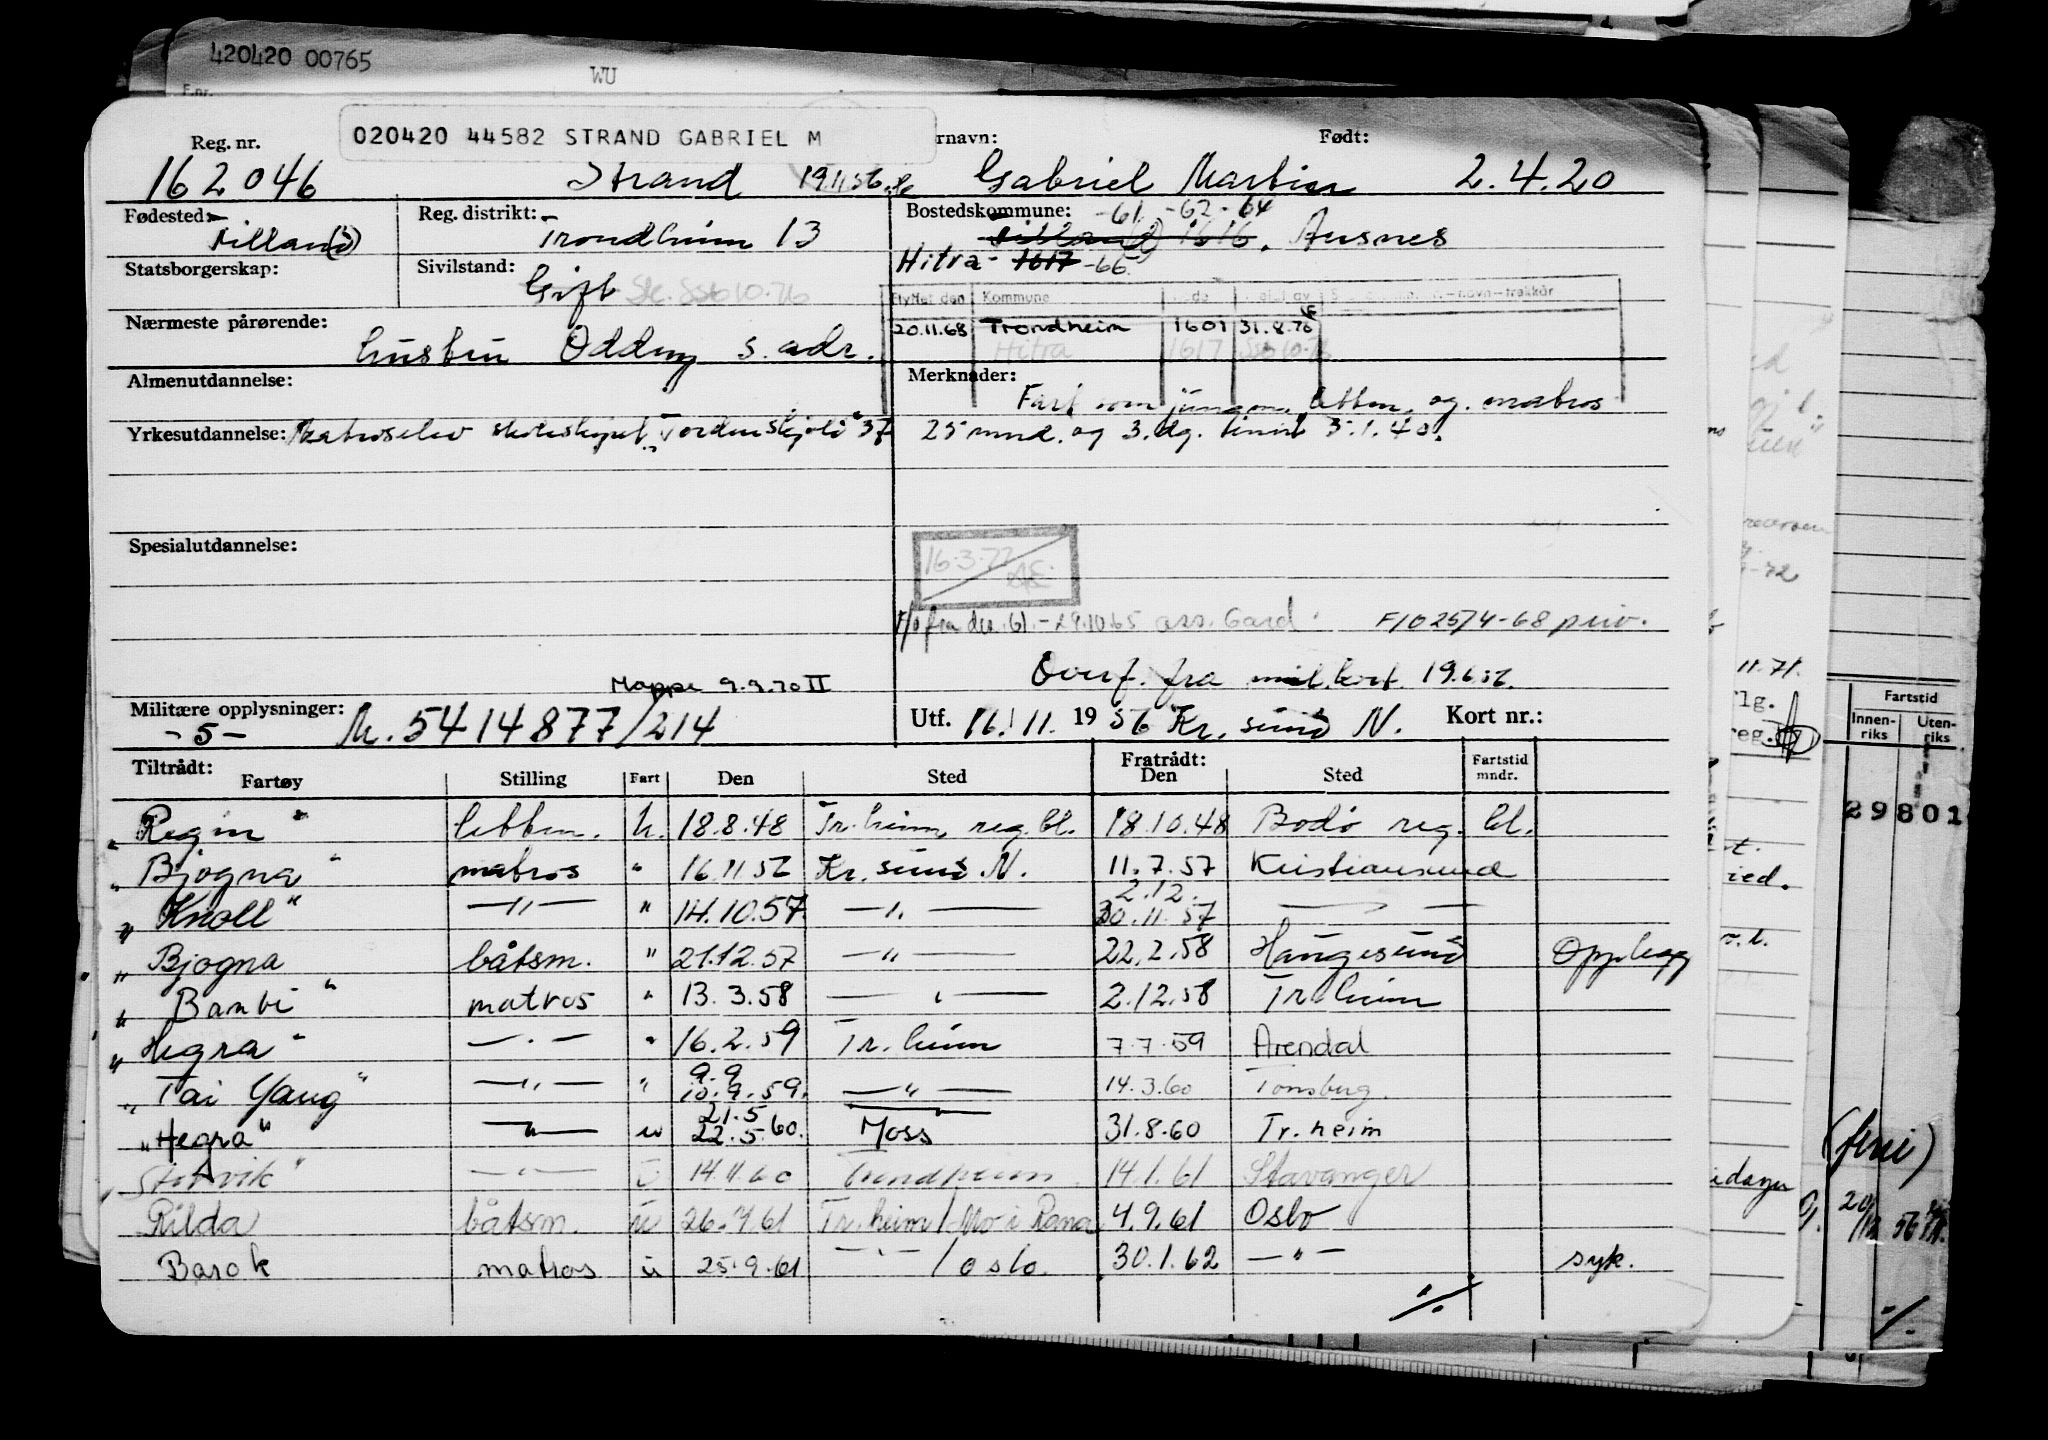 420420 00765
WU
020420 44582 STRAND GABRIEL M
Reg. nr. rnavn: Født:
162046 Strand 19.11.56 Gabriel Martin 2.4.20
Fødested: Reg. distrikt: Bostedskommune: -61 -62 -64
Fillan(d) Trondheim 13 1616, Ansnes
Statsborgerskap: Sivilstand: Hitra - 1617 -66
Gift Ssb 10.76
Flyttet den Kommune
Nærmeste pårørende: 20.11.68 Trondheim 1601 31.8.76
hustru Oddny s. adr. Hitra 1617 Ssb 10.76
Almenutdannelse: Merknader:
Fart som jungm. lettm. og matros
Yrkesutdannelse: Matroselev skoleskipet "Tordenskjold" 37 25 mnd. og 3. dg. innt. 3.1.40.
Spesialutdannelse:
16.3.77
F/o fra des. 61 - 29.10.65 ass. Gard. F/O 25/4-68 priv.
Overf. fra mil.kort 19.6.57.
Mappe 9.9.70 II
Militære opplysninger: M. 5414877/214 Utf. 16/11 1956 Kr. sund N. Kort nr.:
-5-
Tiltrådt: Fratrådt:
Fartøy Stilling Fart Den Sted Den Sted Fartstid mndr.
"Regin" lettm. u. 18.8.48 Tr.heim reg. bl. 18.10.48 Bodø reg. bl.
"Bjogna" matros " 16.11.56 Kr. sund N. 11.7.57 Kristiansund
2.12.
"Knoll" —"— " 14.10.57 —"— 30.11.57 —"—
"Bjogna båtsm. " 21.12.57 —"— 22.2.58 Haugesund Opplegg
"Bambi" matros " 13.3.58 —"— 2.12.58 Tr.heim
"Hegra" —"— " 16.2.59 Tr.heim 7.7.59 Arendal
9.9
"Tai Yang" —"— " 10.9.59. —"— 14.3.60 Tønsberg.
21.5
"Hegra" —"— u 22.5.60. Moss 31.8.60 Tr.heim
"Storvik" —"— 14.11.60 Trondheim 14.1.61 Stavanger
Rilda båtsm. u 26.7.61 Tr.heim/Mo i Rana 4.9.61 Oslo
Barok matros u 25.9.61 —"— / Oslo. 30.1.62 —"— syk.
·/.
11.71.
Fartstid
Innen-riks Uten-riks
29801
(ferie)
·/.